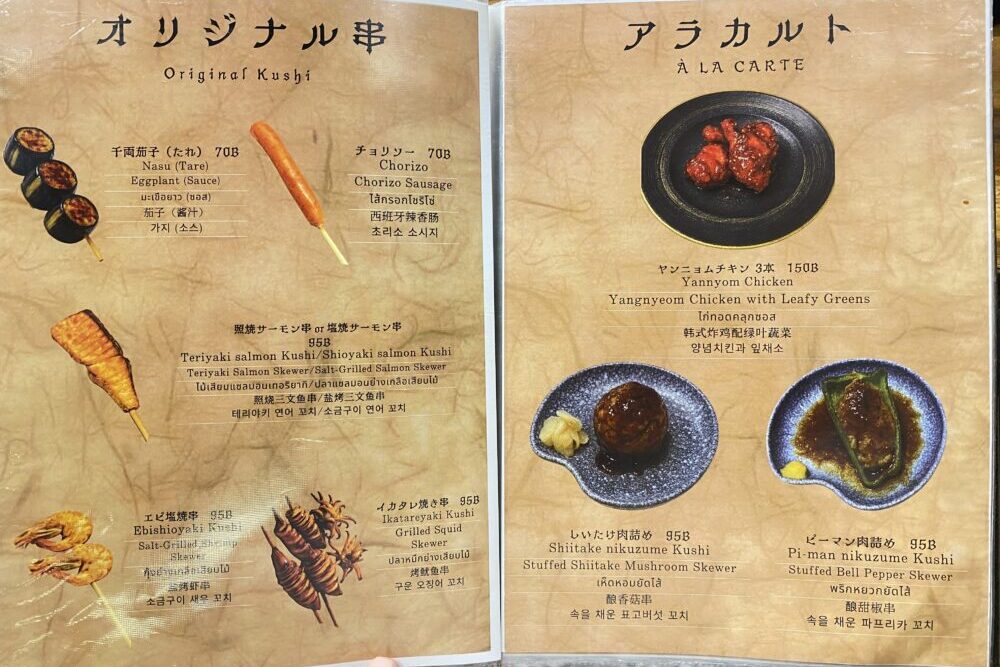 オリジナル串
Original Kushi
千両茄子（たれ） 70B
Nasu (Tare)
Eggplant (Sauce)
มะเขือยาว (ซอส)
茄子（酱汁）
가지 (소스)
チョリソー 70B
Chorizo
Chorizo Sausage
ไส้กรอกโชริโซ่
西班牙辣香肠
초리소 소시지
照焼サーモン串 or 塩焼サーモン串
95B
Teriyaki salmon Kushi/Shioyaki salmon Kushi
Teriyaki Salmon Skewer/Salt-Grilled Salmon Skewer
ไม้เสียบแซลมอนเทอริยากิ/ปลาแซลมอนย่างเกลือเสียบไม้
照烧三文鱼串/盐烤三文鱼串
테리야키 연어 꼬치/소금구이 연어 꼬치
エビ塩焼串 95B
Ebishioyaki Kushi
Salt-Grilled Shrimp
Skewer
กุ้งย่างเกลือเสียบไม้
盐烤虾串
소금구이 새우 꼬치
イカタレ焼き串 95B
Ikatareyaki Kushi
Grilled Squid
Skewer
ปลาหมึกย่างเสียบไม้
烤鱿鱼串
구운 오징어 꼬치
アラカルト
À LA CARTE
ヤンニョムチキン 3本 150B
Yannyom Chicken
Yangnyeom Chicken with Leafy Greens
ไก่ทอดคลุกซอส
韩式炸鸡配绿叶蔬菜
양념치킨과 잎채소
しいたけ肉詰め 95B
Shiitake nikuzume Kushi
Stuffed Shiitake Mushroom Skewer
เห็ดหอมยัดไส้
酿香菇串
속을 채운 표고버섯 꼬치
ピーマン肉詰め 95B
Pi-man nikuzume Kushi
Stuffed Bell Pepper Skewer
พริกหยวกยัดไส้
酿甜椒串
속을 채운 파프리카 꼬치